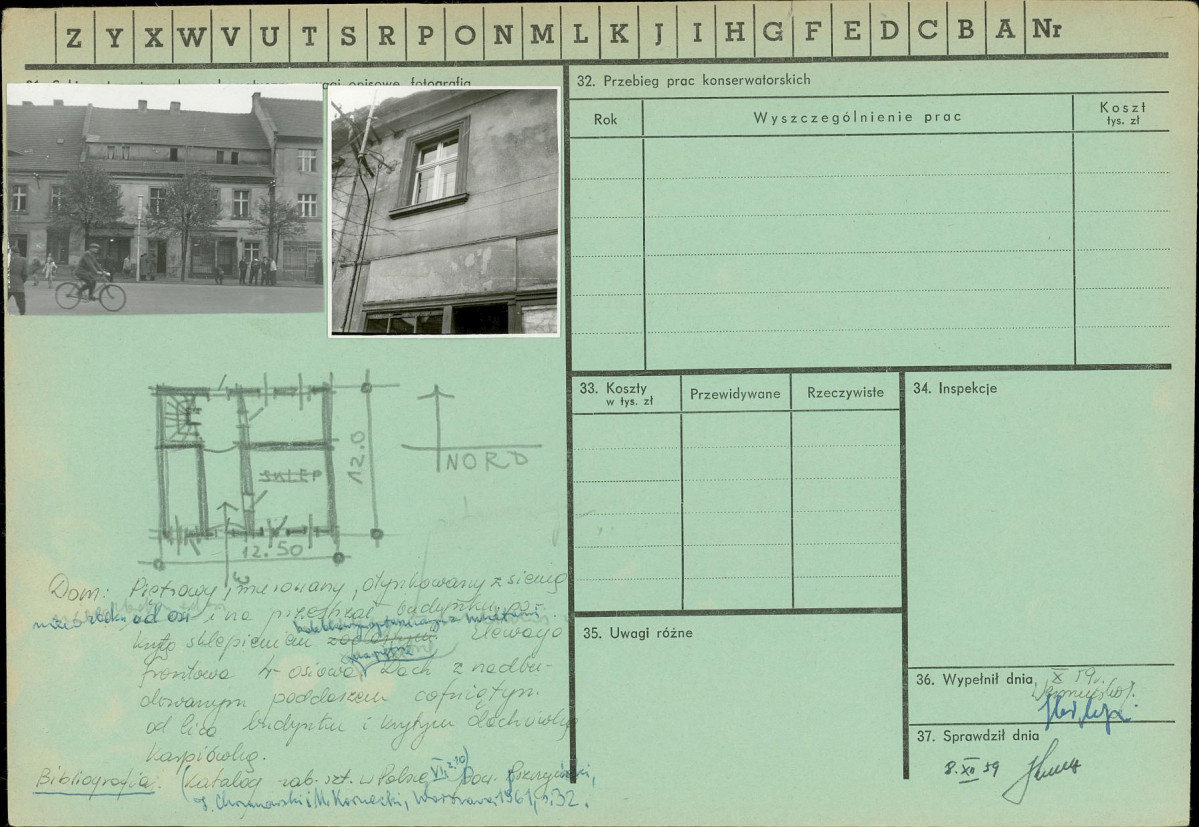 Z Y X W V U T S R P O N M L K J I H G F E D C B A Nr
opisowe, fotografia
32. Przebieg prac konserwatorskich
Rok
Wyszczególnienie prac
Koszt
tys. zł
33. Koszty
w tys. zł
Przewidywane
Rzeczywiste
34. Inspekcje
12.0
NORD
SKLEP
12.50
Dom: Piętrowy, murowany, otynkowany z sienią
od osi i na przestrzał budynku po
kryto sklepieniem Elewacja
frontowa 4-osiowa, Dach z nadbu-
dowanym poddaszem cofniętym
od lica budynku i krytym dachówką
karpiówką.
Bibliografia: (Katalog zab. szt. w Polsce VII z.10 Pow.
J. Chrzanowski i M. Kornecki, Warszawa 1961, s. 32.
35. Uwagi różne
36. Wypełnił dnia X 59r.
37. Sprawdził dnia
8. XII 59